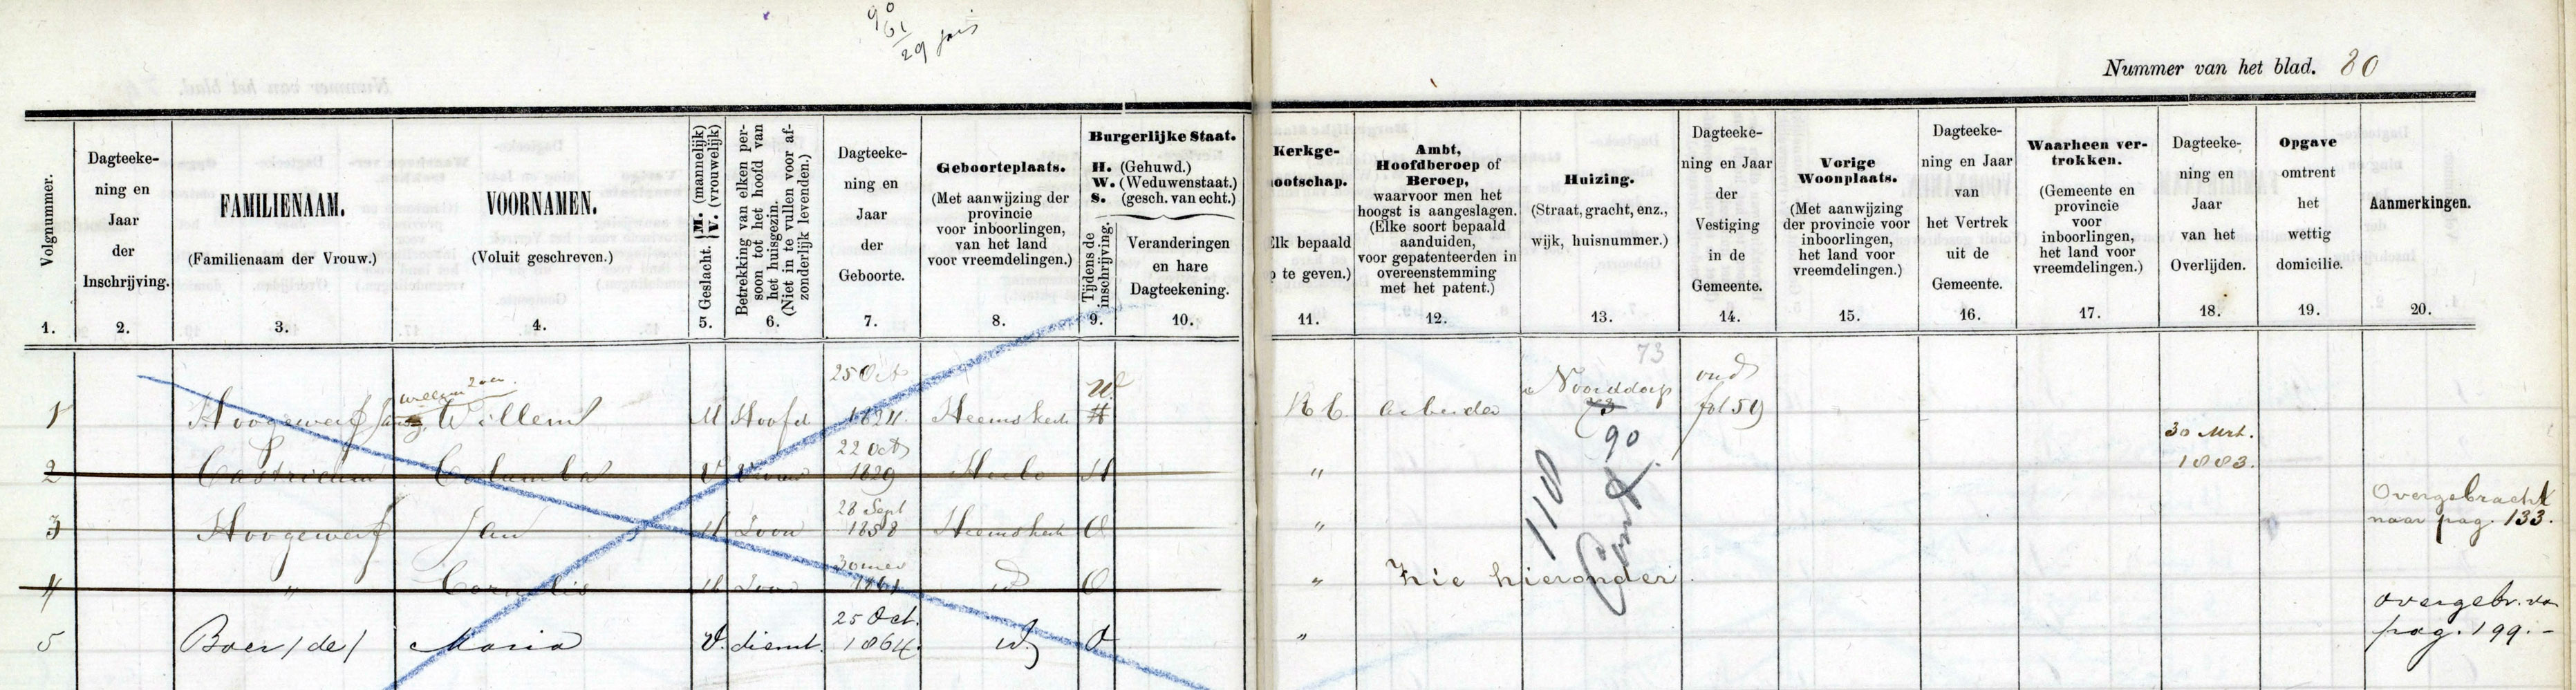 90
61
29 juis
Nummer van het blad. 80
Volgnummer.
1.
Dagteeke-
ning en
Jaar
der
Inschrijving.
2.
FAMILIENAAM.
(Familienaam der Vrouw.)
3.
VOORNAMEN.
(Voluit geschreven.)
4.
Geslacht. M. (mannelijk)
V. (vrouwelijk)
5.
Betrekking van elken per-
soon tot het hoofd van
het huisgezin.
(Niet in te vullen voor af-
zonderlijk levenden.)
6.
Dagteeke-
ning en
Jaar
der
Geboorte.
7.
Geboorteplaats.
(Met aanwijzing der
provincie
voor inboorlingen,
van het land
voor vreemdelingen.)
8.
Burgerlijke Staat.
H. (Gehuwd.)
W. (Weduwenstaat.)
S. (gesch. van echt.)
Tijdens de
inschrijving.
9.
Veranderingen
en hare
Dagteekening.
10.
Kerkge-
ootschap.
Elk bepaald
p te geven.)
11.
Ambt,
Hoofdberoep of
Beroep,
waarvoor men het
hoogst is aangeslagen.
(Elke soort bepaald
aanduiden,
voor gepatenteerden in
overeenstemming
met het patent.)
12.
Huizing.
(Straat, gracht, enz.,
wijk, huisnummer.)
13.
Dagteeke-
ning en Jaar
der
Vestiging
in de
Gemeente.
14.
Vorige
Woonplaats.
(Met aanwijzing
der provincie voor
inboorlingen,
het land voor
vreemdelingen.)
15.
Dagteeke-
ning en Jaar
van
het Vertrek
uit de
Gemeente.
16.
Waarheen ver-
trokken.
(Gemeente en
provincie
voor
inboorlingen,
het land voor
vreemdelingen.)
17.
Dagteeke-
ning en
Jaar
van het
Overlijden.
18.
Opgave
omtrent
het
wettig
domicilie.
19.
Aanmerkingen.
20.
1 Hoogewerf Willem M Hoofd 25 Oct 1824 Heemskerk H W. R C. Arbeider Noorddorp 73 73 90 oud fol 59
willem zoon.
2 Castricum Columba V Vrouw 22 Oct 1829 Heilo H " 30 Mrt. 1883.
3 Hoogewerf Jan M Zoon 28 Sept 1858 Heemskerk O " Overgebracht
naar pag. 133.
4 " Cornelis M Zoon 30 mei 1861 id O " Zie hieronder.
110
5 Boer (de) Maria V. dienst. 25 Oct. 1864. id. O " overgebr. van
pag. 199.-